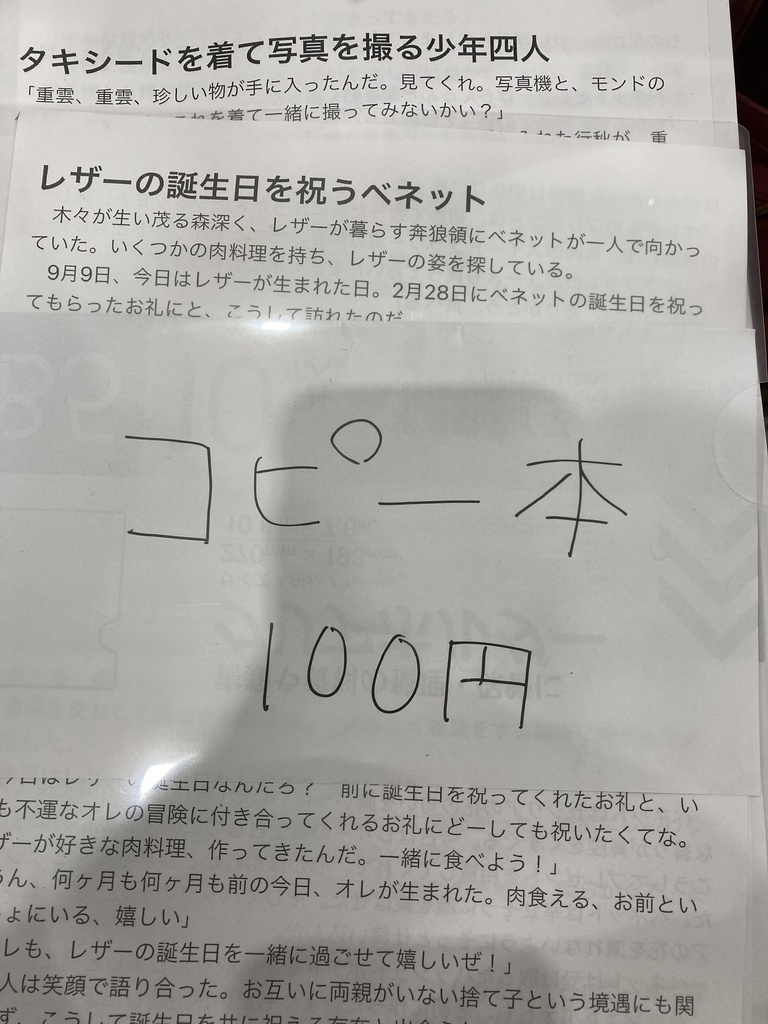 タキシードを着て写真を撮る少年四人
「重雲、重雲、珍しい物が手に入ったんだ。見てくれ。写真機と、モンドの
これを着て一緒に撮ってみないかい？」
入れた行秋が、重
レザーの誕生日を祝うベネット
木々が生い茂る森深く、レザーが暮らす奔狼領にベネットが一人で向かっ
ていた。いくつかの肉料理を持ち、レザーの姿を探している。
9月9日、今日はレザーが生まれた日。2月28日にベネットの誕生日を祝っ
てもらったお礼にと、こうして訪れたのだ
コピー本
100円
今日はレザーの誕生日なんだろ？　前に誕生日を祝ってくれたお礼と、い
も不運なオレの冒険に付き合ってくれるお礼にどーしても祝いたくてな。
ザーが好きな肉料理、作ってきたんだ。一緒に食べよう！」
うん、何ヶ月も何ヶ月も前の今日、オレが生まれた。肉食える、お前とい
しょにいる、嬉しい」
レも、レザーの誕生日を一緒に過ごせて嬉しいぜ！」
人は笑顔で語り合った。お互いに両親がいない捨て子という境遇にも関
ず、こうして誕生日を共に祝える